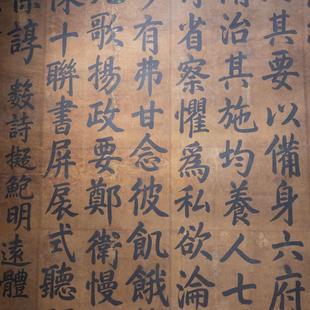 其要以備身六府
治其施均養人七
省察懼爲私欲淪
有弗甘念彼飢餓
歌揚政要鄭衛慢
十聯書屏扆式聽
諄 數詩擬鮑明遠體